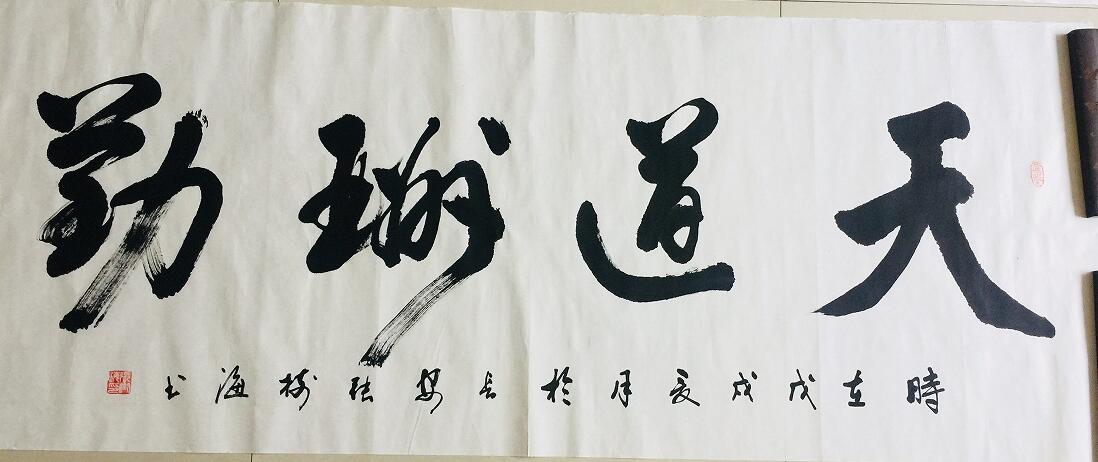 天道酬勤
時在戊戌夏月於長安張樹海书